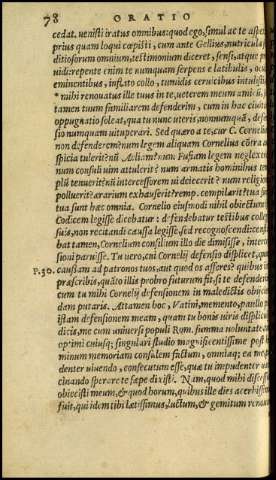 78 ORATIO
cedat. uenisti iratus omnibus: quod ego, simul ac te aspexi
prius quam loqui cœpisti, cum ante Gellius, nutricula
ditiosorum omnium, testimonium diceret, sensi, atque
uidi: repente enim te tanquam serpens e latibulis, oculis
eminentibus, inflato collo, tumidis ceruicibus intulisti,
* mihi renouatus ille tuus in te, ueterem meum
tamen tuum familiarem defenderim, cum in hac ciuitate
oppugnatio soleat, qua tu nunc uteris, nonnunquã, defen
sio nunquam uituperari. Sed quæro a te, cur C. Cornelium
non defenderem? num legem aliquam Cornelius cõtra au
spicia tulerit? num Aeliam? num Fufiam legem neglexerit?
num consuli uim attulerit? num armatis hominibus tem
plũ tenuerit? nũ intercessorem ui deiecerit? num religiones
polluerit? ærarium exhauserit? remp. compilarit? tua sũt,
tua sunt hæc omnia. Cornelio eiusmodi nihil obiectum est.
Codicem legisse dicebatur: defendebatur testibus collegis
suis, non recitandi caussa legisse, sed recognoscendi. consta
bat tamen, Cornelium consilium illo die dimisisse, interces
sioni paruisse. Tu uero, cui Cornelij defensio displicet, quam
P.30. caussam ad patronos tuos, aut quod os afferes? quibus iam
præscribis, quãto illis probro futurum sit, si te defenderint,
cum tu mihi Cornelij defensionem in maledictis obijcien
dam putaris. Attamen hoc, Vatini, memento, paullo post
istam defensionem meam, quam tu bonis uiris displicuisse
dicis, me cum uniuersi populi Rom. summa uoluntate, tum
optimi cuiusq; singulari studio magnificentissime post ho
minum memoriam consulem factum, omniaq; ea me pu
denter uiuendo, consecutum esse, quæ tu impudenter uati
cinando sperare te sæpe dixisti. Nam, quod mihi discessum
obiecisti meum, & quod horum, quibus ille dies acerbissimus
fuit, qui idem tibi lætissimus, luctum, & gemitum renouare